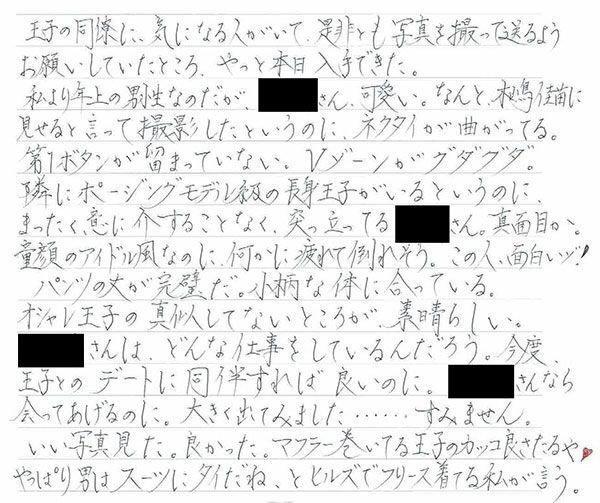 王子の同僚に、気になる人がいて、是非とも写真を撮って送るよう
お願いしていたところ、やっと本日入手できた。
私より年上の男性なのだが、さん、可愛い。なんと、木嶋佳苗に
見せると言って撮影したというのに、ネクタイが曲がってる。
第1ボタンが留まっていない。Vゾーンがグダグダ。
隣にポージングモデル級の長身王子がいるというのに、
まったく意に介することなく、突っ立ってるさん。真面目か。
童顔のアイドル風なのに、何かに疲れて倒れそう。この人、面白いッ!
パンツの丈が完璧だ。小柄な体に合っている。
オシャレ王子の真似してないところが、素晴らしい。
さんは、どんな仕事をしているんだろう。今度、
王子とのデートに同伴すれば良いのに。さんなら
会ってあげるのに。大きく出てみました……すみません。
いい写真見た。良かった。マフラー巻いてる王子のカッコ良さたるや
やっぱり男はスーツにタイだね、とヒルズでフリース着てる私が言う。